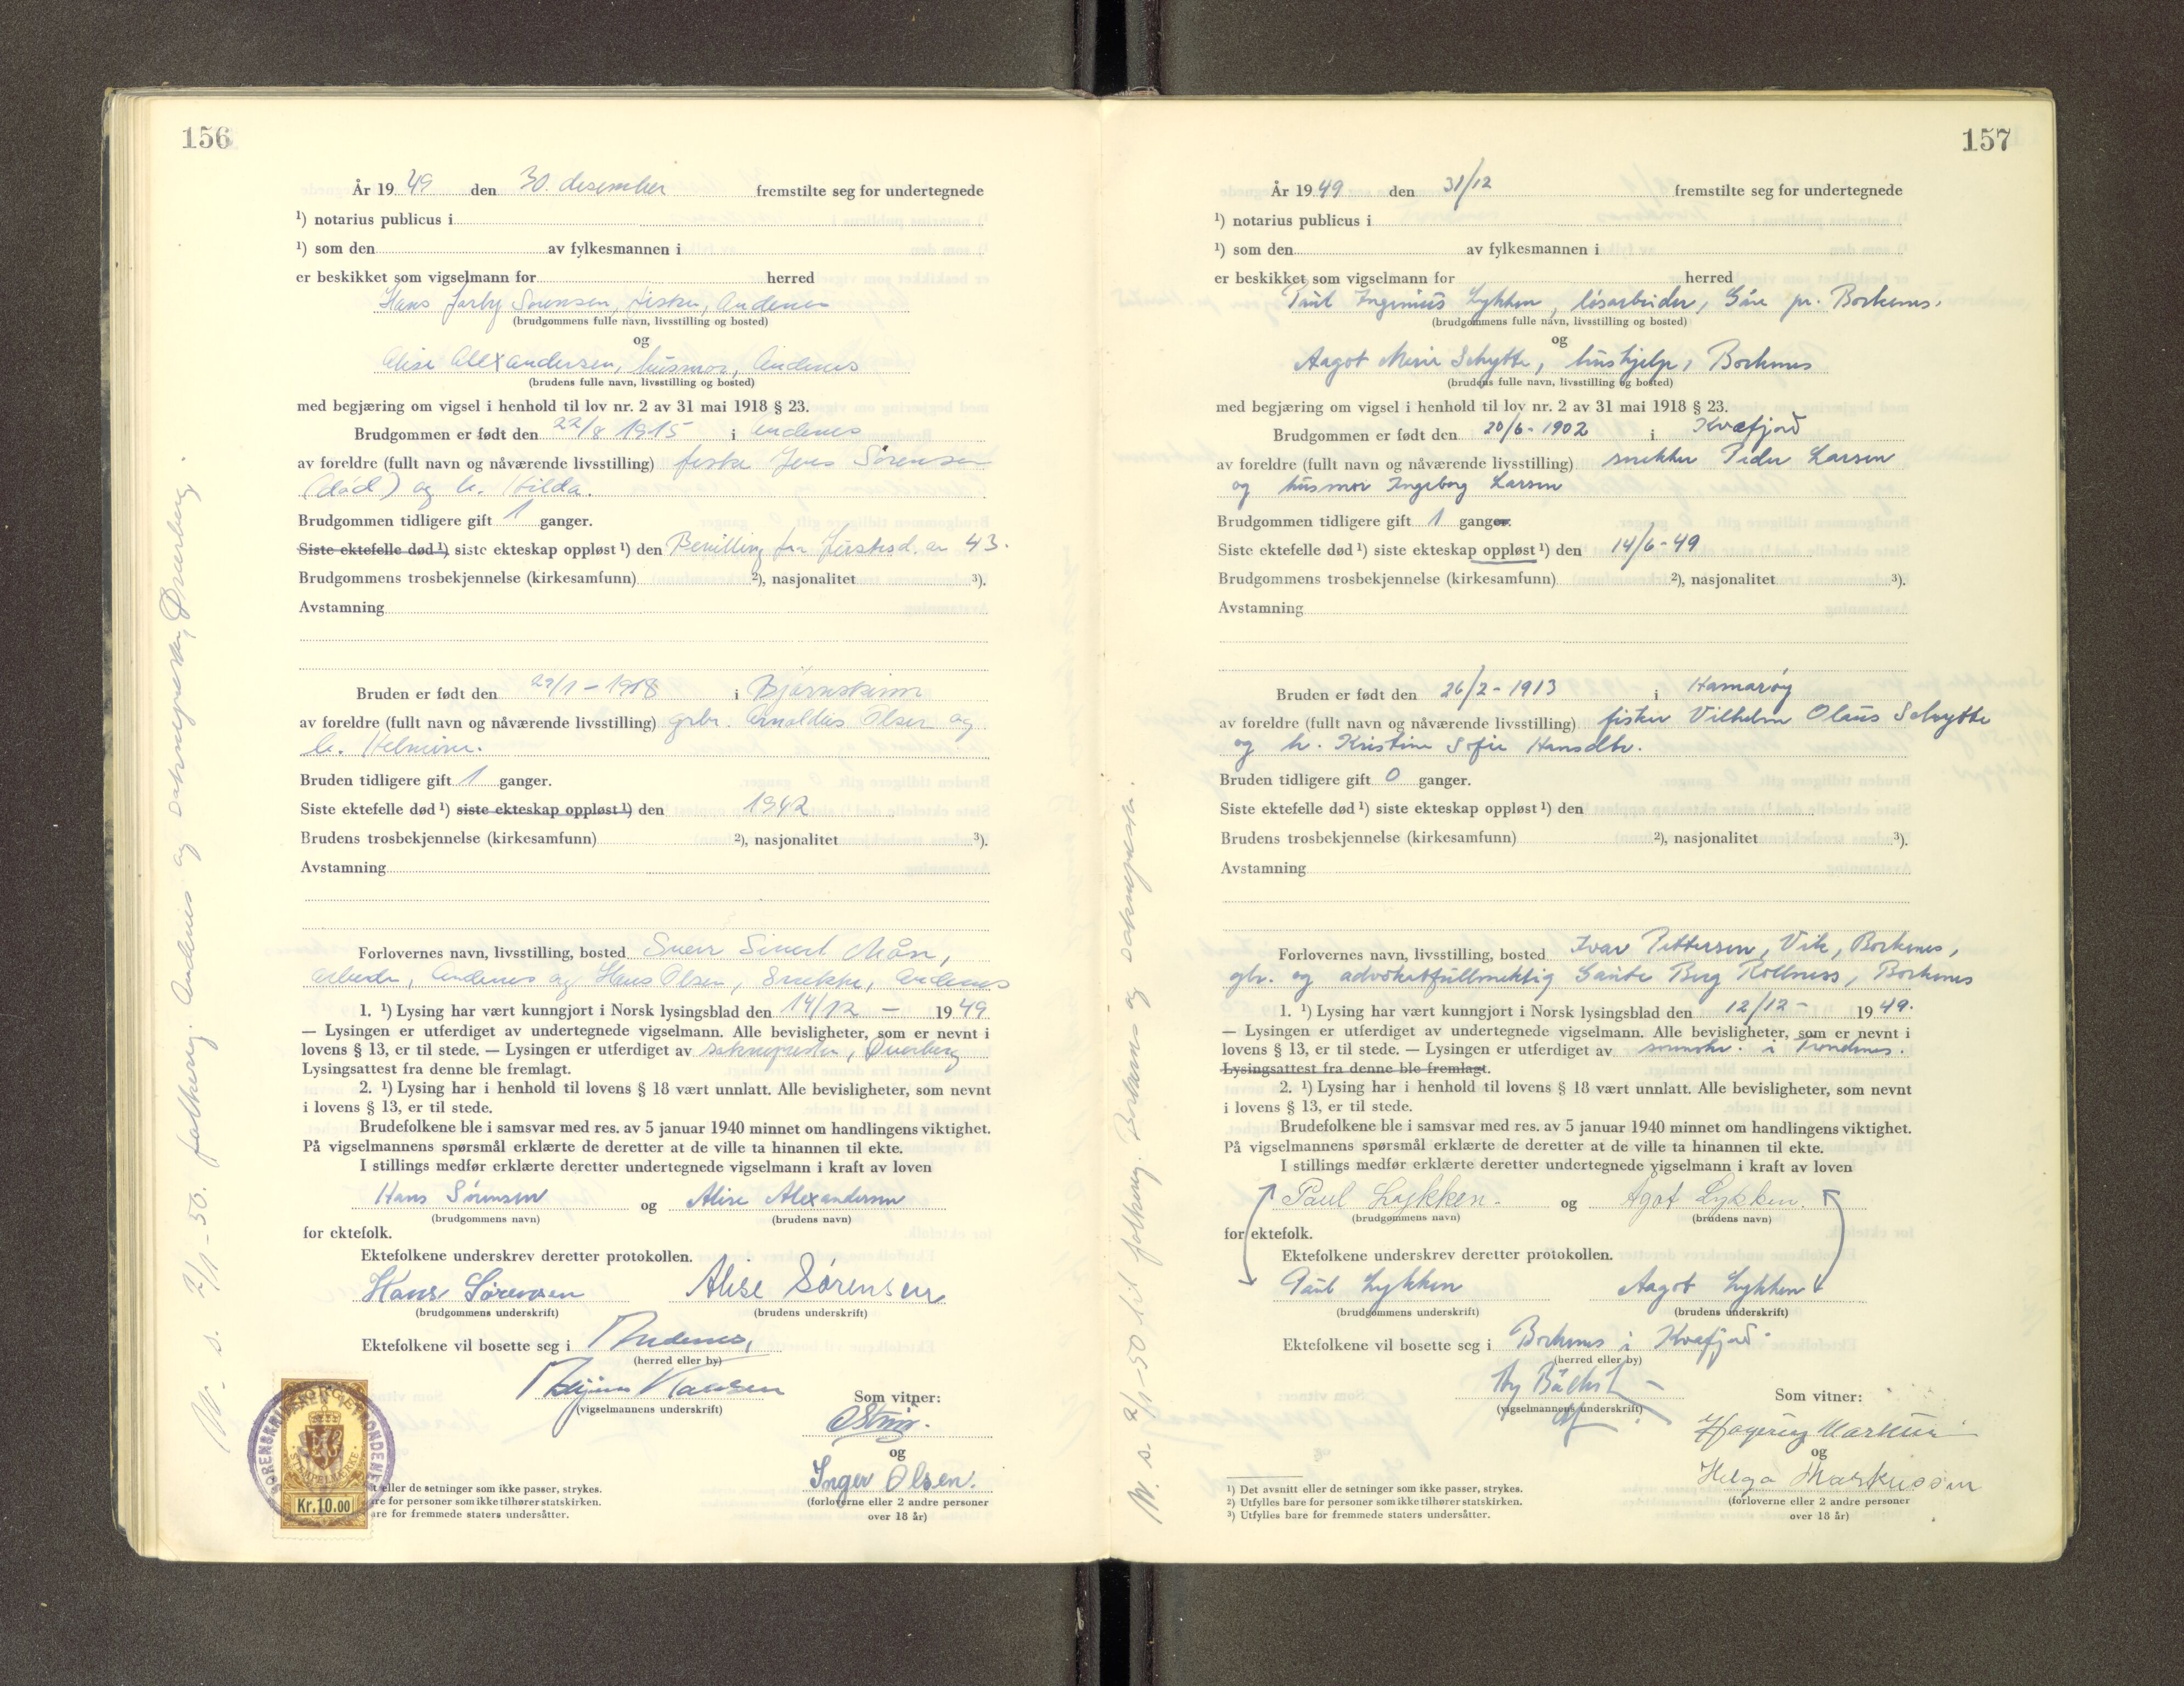 156
År 19 49 den 30. desember fremstilte seg for undertegnede
¹) notarius publicus i
¹) som den av fylkesmannen i
er beskikket som vigselmann for herred
Hans Jarby Sørensen, fisker, Andenes
(brudgommens fulle navn, livsstilling og bosted)
og
Alise Alexandersen, husmor, Andenes
(brudens fulle navn, livsstilling og bosted)
med begjæring om vigsel i henhold til lov nr. 2 av 31 mai 1918 § 23.
Brudgommen er født den 22/8 1915 i Andenes
av foreldre (fullt navn og nåværende livsstilling) fisker Jens Sørensen
(død) og h. Hilda.
Brudgommen tidligere gift 1 ganger.
Siste ektefelle død ¹) siste ekteskap oppløst ¹) den Bevilling fra Justisd. av 43.
Brudgommens trosbekjennelse (kirkesamfunn) ²), nasjonalitet ³).
Avstamning
Bruden er født den 29/1 - 1908 i Bjørnskinn
av foreldre (fullt navn og nåværende livsstilling) grbr. Arnoldus Olsen og
h. Helmine.
Bruden tidligere gift 1 ganger.
Siste ektefelle død ¹) siste ekteskap oppløst ¹) den 1942
Brudens trosbekjennelse (kirkesamfunn) ²), nasjonalitet ³).
Avstamning
Forlovernes navn, livsstilling, bosted Sverr Sivert Måsø,
arbeider, Andenes og Hans Olsen, Snekker, Andenes
1. ¹) Lysing har vært kunngjort i Norsk lysingsblad den 14/12 - 19 49
— Lysingen er utferdiget av undertegnede vigselmann. Alle bevisligheter, som er nevnt i
lovens § 13, er til stede. — Lysingen er utferdiget av soknepresten, Dverberg
Lysingsattest fra denne ble fremlagt.
2. ¹) Lysing har i henhold til lovens § 18 vært unnlatt. Alle bevisligheter, som nevnt
i lovens § 13, er til stede.
Brudefolkene ble i samsvar med res. av 5 januar 1940 minnet om handlingens viktighet.
På vigselmannens spørsmål erklærte de deretter at de ville ta hinannen til ekte.
I stillings medfør erklærte deretter undertegnede vigselmann i kraft av loven
Hans Sørensen og Alise Alexandersen
(brudgommens navn) (brudens navn)
for ektefolk.
Ektefolkene underskrev deretter protokollen.
Hans Sørensen Alise Sørensen
(brudgommens underskrift) (brudens underskrift)
Ektefolkene vil bosette seg i Andenes,
(herred eller by)
(vigselmannens underskrift)
Som vitner:
og
Inger Olsen.
(forloverne eller 2 andre personer
over 18 år)
eller de setninger som ikke passer, strykes.
are for personer som ikke tilhører statskirken.
are for fremmede staters undersåtter.
SORENSKRIVEREN I TRONDENES
STEMPELMERKE
Kr.10.00
M. s. 2/1-50. folkereg. Andenes og soknepresten, Dverberg.
157
År 19 49 den 31/12 fremstilte seg for undertegnede
¹) notarius publicus i
¹) som den av fylkesmannen i
er beskikket som vigselmann for herred
Paul Ingenius Lykken, løsarbeider, Gåre pr. Borkenes.
(brudgommens fulle navn, livsstilling og bosted)
og
Aagot Marie Schytte, hushjelp, Borkenes
(brudens fulle navn, livsstilling og bosted)
med begjæring om vigsel i henhold til lov nr. 2 av 31 mai 1918 § 23.
Brudgommen er født den 20/6 - 1902 i Kvæfjord
av foreldre (fullt navn og nåværende livsstilling) snekker Peder Larsen
og husmor Ingeborg Larsen
Brudgommen tidligere gift 1 ganger.
Siste ektefelle død ¹) siste ekteskap oppløst ¹) den 14/6 - 49
Brudgommens trosbekjennelse (kirkesamfunn) ²), nasjonalitet ³).
Avstamning
Bruden er født den 26/2 - 1913 i Hamarøy
av foreldre (fullt navn og nåværende livsstilling) fisker Vilhelm Olaus Schytte
og h. Kristine Sofie Hansdtr.
Bruden tidligere gift 0 ganger.
Siste ektefelle død ¹) siste ekteskap oppløst ¹) den
Brudens trosbekjennelse (kirkesamfunn) ²), nasjonalitet ³).
Avstamning
Forlovernes navn, livsstilling, bosted Ivar Pettersen, Vik, Borkenes,
gbr. og advokatfullmektig Sante Berg Rollness, Borkenes
1. ¹) Lysing har vært kunngjort i Norsk lysingsblad den 12/12 - 19 49.
— Lysingen er utferdiget av undertegnede vigselmann. Alle bevisligheter, som er nevnt i
lovens § 13, er til stede. — Lysingen er utferdiget av sorenskr. i Trondenes.
Lysingsattest fra denne ble fremlagt.
2. ¹) Lysing har i henhold til lovens § 18 vært unnlatt. Alle bevisligheter, som nevnt
i lovens § 13, er til stede.
Brudefolkene ble i samsvar med res. av 5 januar 1940 minnet om handlingens viktighet.
På vigselmannens spørsmål erklærte de deretter at de ville ta hinannen til ekte.
I stillings medfør erklærte deretter undertegnede vigselmann i kraft av loven
Paul Lykken. og Agot Lykken.
(brudgommens navn) (brudens navn)
for ektefolk.
Ektefolkene underskrev deretter protokollen.
Paul Lykken Aagot Lykken
(brudgommens underskrift) (brudens underskrift)
Ektefolkene vil bosette seg i Borkenes i Kvæfjord.
(herred eller by)
(vigselmannens underskrift)
Som vitner:
og
Helga Markusson
(forloverne eller 2 andre personer
over 18 år)
¹) Det avsnitt eller de setninger som ikke passer, strykes.
²) Utfylles bare for personer som ikke tilhører statskirken.
³) Utfylles bare for fremmede staters undersåtter.
M. s. 2/1-50 til folkereg. Borkenes og soknepresten.